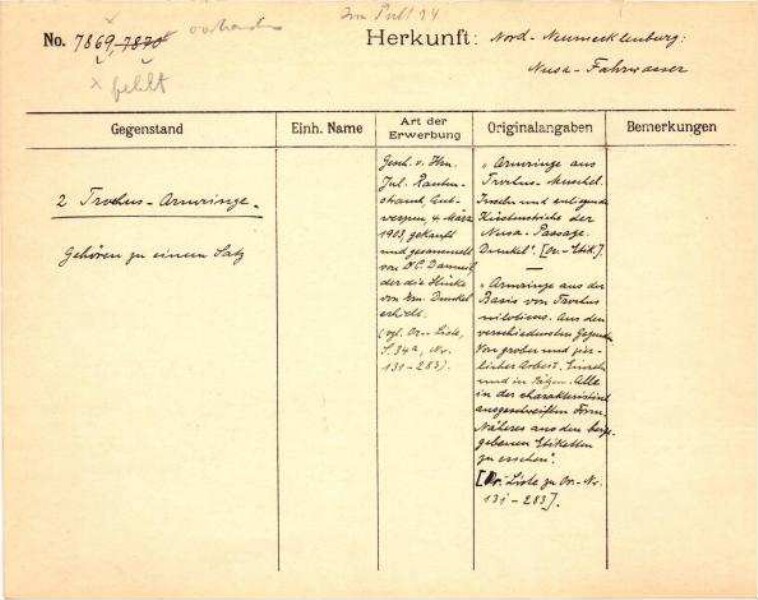 Im Pult 94
No. 7869, 7870 vorhanden
x fehlt
Herkunft: Nord-Neumecklenburg:
Nusa-Fahrwasser
Gegenstand
Einh. Name
Art der
Erwerbung
Originalangaben
Bemerkungen
2 Trochus-Armringe.
Gehören zu einem Satz
Gesch. v. Hrn.
Jul. Rauten-
strauch, Ant-
werpen, 4. März
1903, gekauft
und gesammelt
von Dr C. Danneil,
der die Stücke
von Hrn. Dunckel
erhielt.
(vgl. Or.-Liste,
S. 34a, Nr.
131-283).
„Armringe aus
Trochus-Muschel.
Inseln und anliegende
Küstenstriche der
Nusa-Passage.
Dunckel". [Or.-Etik.].
„Armringe aus der
Basis von Trochus
niloticus. Aus den
verschiedensten Gegenden
Von grober und zier-
licher Arbeit. Einzeln
und in Sätzen. Alle
in der charakteristisch
ausgeschweiften Form.
Näheres aus den beige-
gebenen Etiketten
zu ersehen".
[Or.-Liste zu Or.-Nr.
131-283].